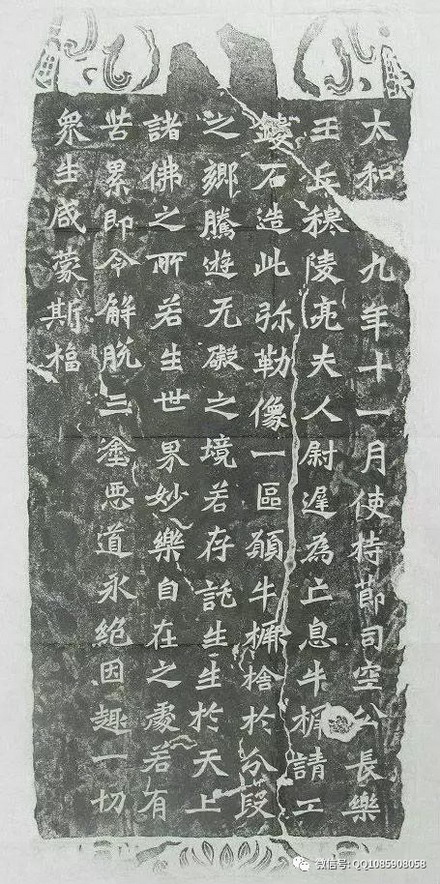 太和九年十一月使持節司空公長樂
王丘穆陵亮夫人尉遲為亡息牛橛請工
鏤石造此弥勒像一區願牛橛捨於分段
之鄉騰遊无礙之境若存託生生於天上
諸佛之所若生世界妙樂自在之處若有
苦累即令解脫三塗惡道永絕因趣一切
衆生咸蒙斯福
微信号: QQ1085908058